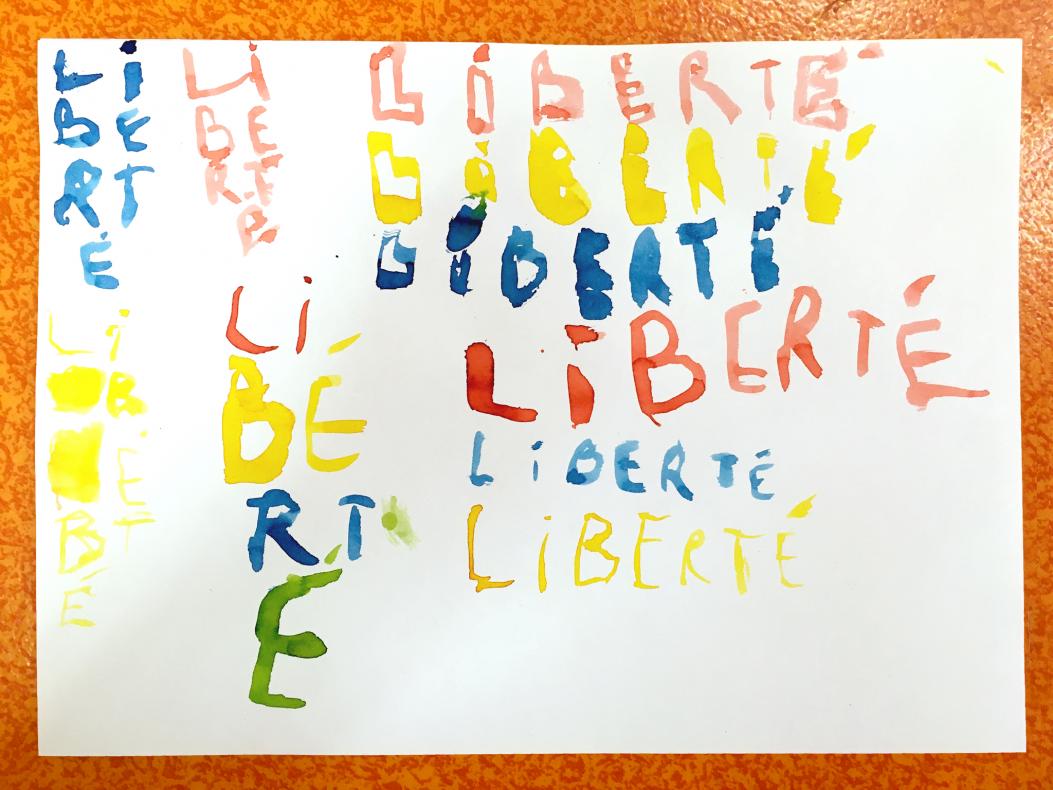 Li
BE
RT
É
LI
BE
RT
LIBERTÉ
LIBERTÉ
LIBERTÉ
Li
B
É
BT
É
Li
BÉ
RT
É
LiBERTÉ
LiBERTÉ
LiBERTÉ